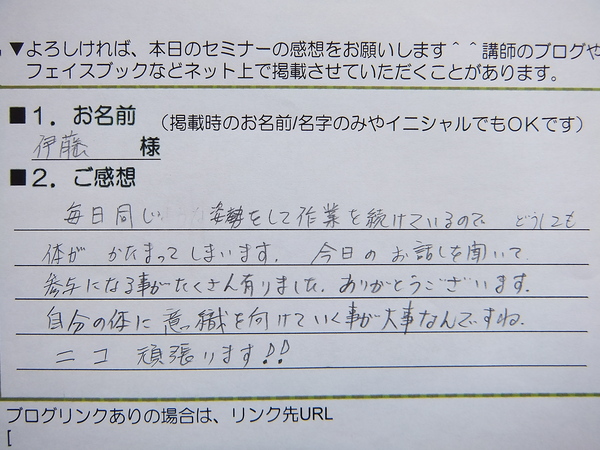 ▼よろしければ、本日のセミナーの感想をお願いします＾＾講師のブログや
フェイスブックなどネット上で掲載させていただくことがあります。
■１．お名前 （掲載時のお名前/名字のみやイニシャルでもＯＫです）
伊藤 様
■２．ご感想
毎日同じ 姿勢をして作業を続けているので どうしても
体が かたまってしまいます． 今日の お話しを聞いて
参与になる事がたくさん有りました．ありがとうございます．
自分の体に意識を向けていく事が大事なんですね．
ニコ 頑張ります!!
ブログリンクありの場合は、リンク先URL
[